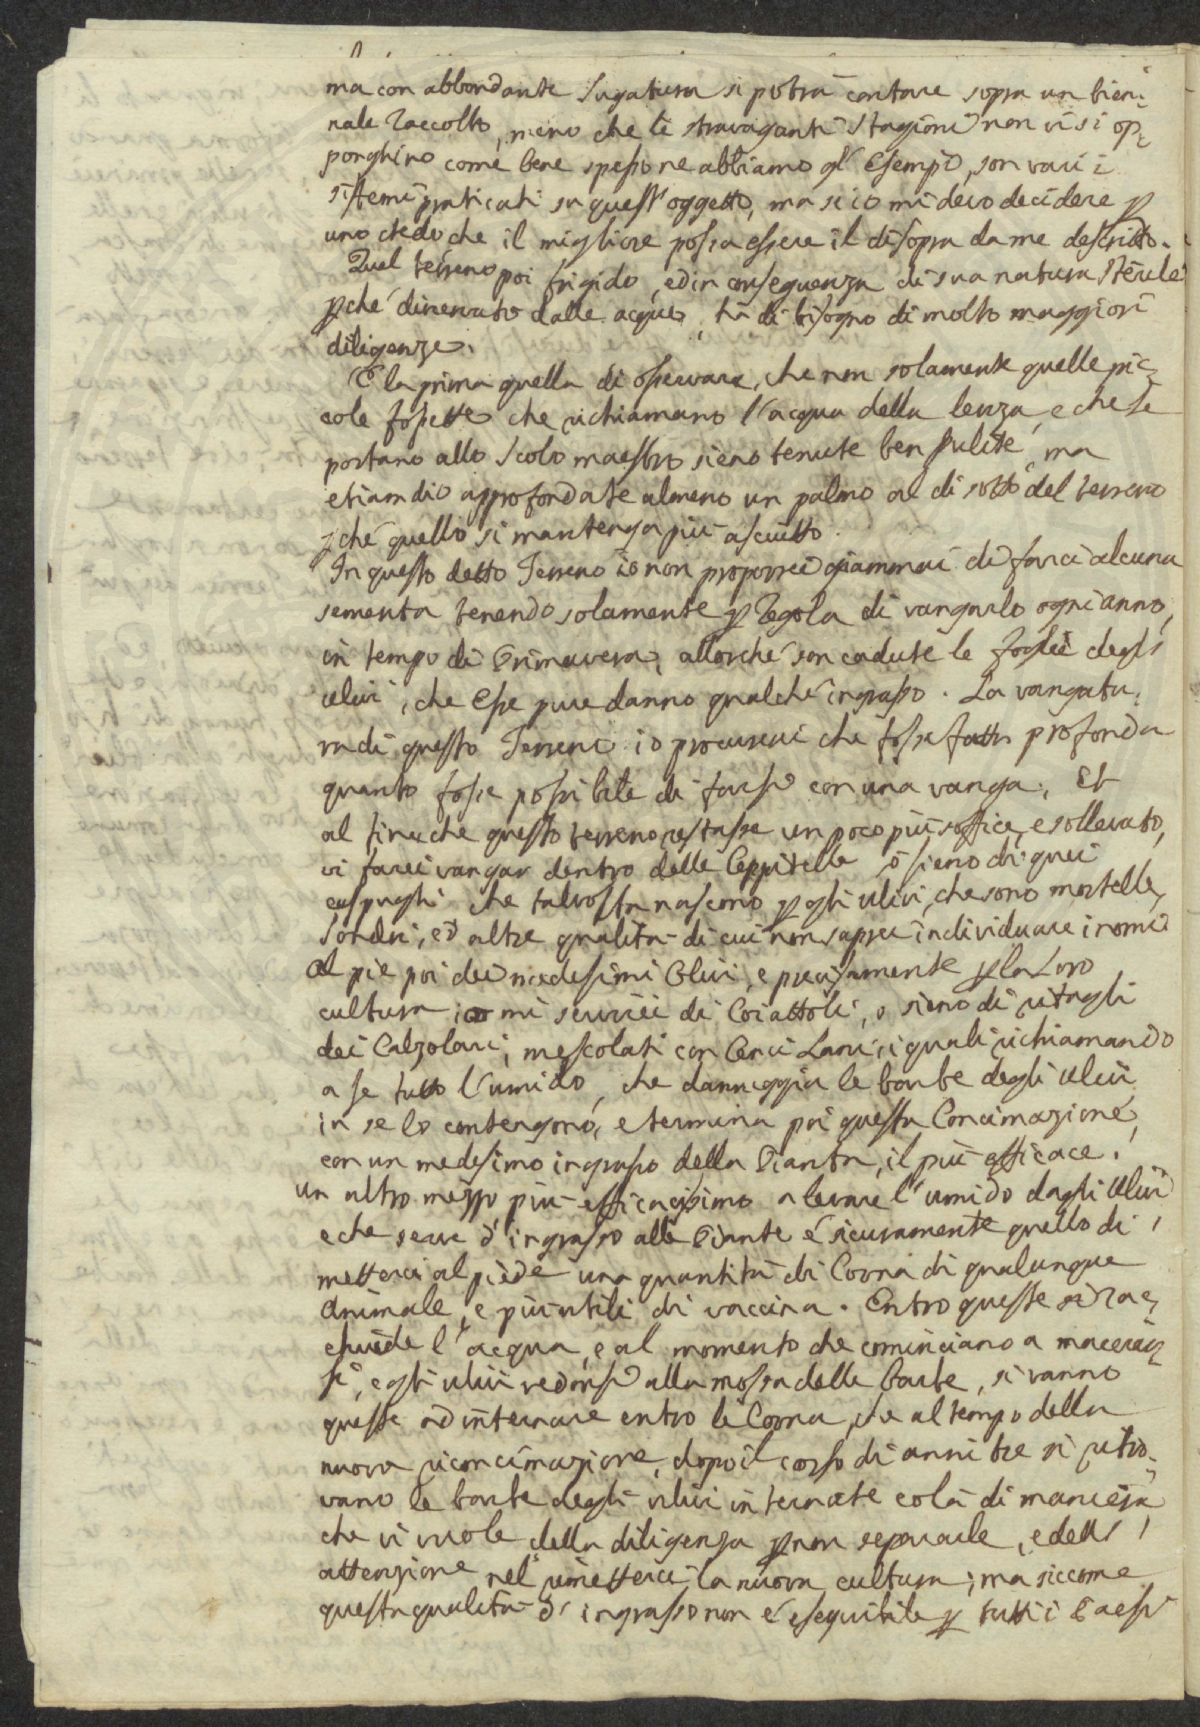 ma con abbondante sugatura si potrà contare sopra un bien:
nale raccolto, meno che le stravaganti stagioni non vi si op:
ponghino come bene spesso ne abbiamo gl'esempi, son varii i
sistemi praticati su quest'oggetto, ma se io mi devo decidere p
uno credo che il migliore possa essere il disopra da me descritto.
Quel terreno poi frigido, ed in conseguenza di sua natura sterile
pchè dinervato dalle acque, hà di bisogno di molto maggiori
diligenze.
È la prima quella di osservare, che non solamente quelle pic:
cole fossette che richiamano l'acqua della lenza, e che le
portano allo scolo maestro sieno tenute ben pulite, ma
etiamdio approfondate almeno un palmo al di sotto del terreno
pchè quello si mantenga più asciutto.
In questo detto Terreno io non proporrei giammai di farci alcuna
sementa tenendo solamente p regola di vangarlo ogni anno,
in tempo di Primavera, allorchè son cadute le foglie degli
ulivi, che esse pure danno qualche ingrasso. La vangatu:
ra di questo Terreno io procurerei che fosse fatta profonda
quanto fosse possibile di farsi con una vanga, et
al fine che questo terreno restasse un poco più soffice, e sollevato,
vi farei vangar dentro delle Ceppitelle ò sieno di quei
cespugli che talvolta nascono p gli ulivi, che sono mortelle,
Sondri, ed altre qualità di cui non saprei individuare i nomi
Al piè poi dei medesimi Olivi, e precisamente p la loro
cultura io mi servirei di Coiattoli, o sieno di ritagli
dei Calzolari, mescolati con Cenci Lani, i quali richiamando
a se tutto l'umido, che danneggia le barbe degli ulivi
in se lo contengono, e termina poi questa Concimazione,
con un medesimo ingrasso della Pianta, il più efficace.
un altro mezzo più efficacissimo a levare l'umido dagli ulivi
e che serve d'ingrasso alle Piante è sicuramente quello di
metterci al piede una quantità di Corna di qualunque
animale, e più utili di vaccina. Entro queste si rac:
chiude l'acqua, e al momento che cominciano a macerar:
si, e gli ulivi vedonsi alla mossa delle barbe, si vanno
queste ad internare entro le Corna, che al tempo della
nuova riconcimazione, dopo il corso di anni tre si ritro:
vano le barbe degli ulivi internate colà di maniera,
che vi vuole della diligenza p non separarle, e dell'
attenzione nel rimetterci la nuova cultura; ma siccome
questa qualità d'ingrasso non è eseguibile p tutti i Paesi